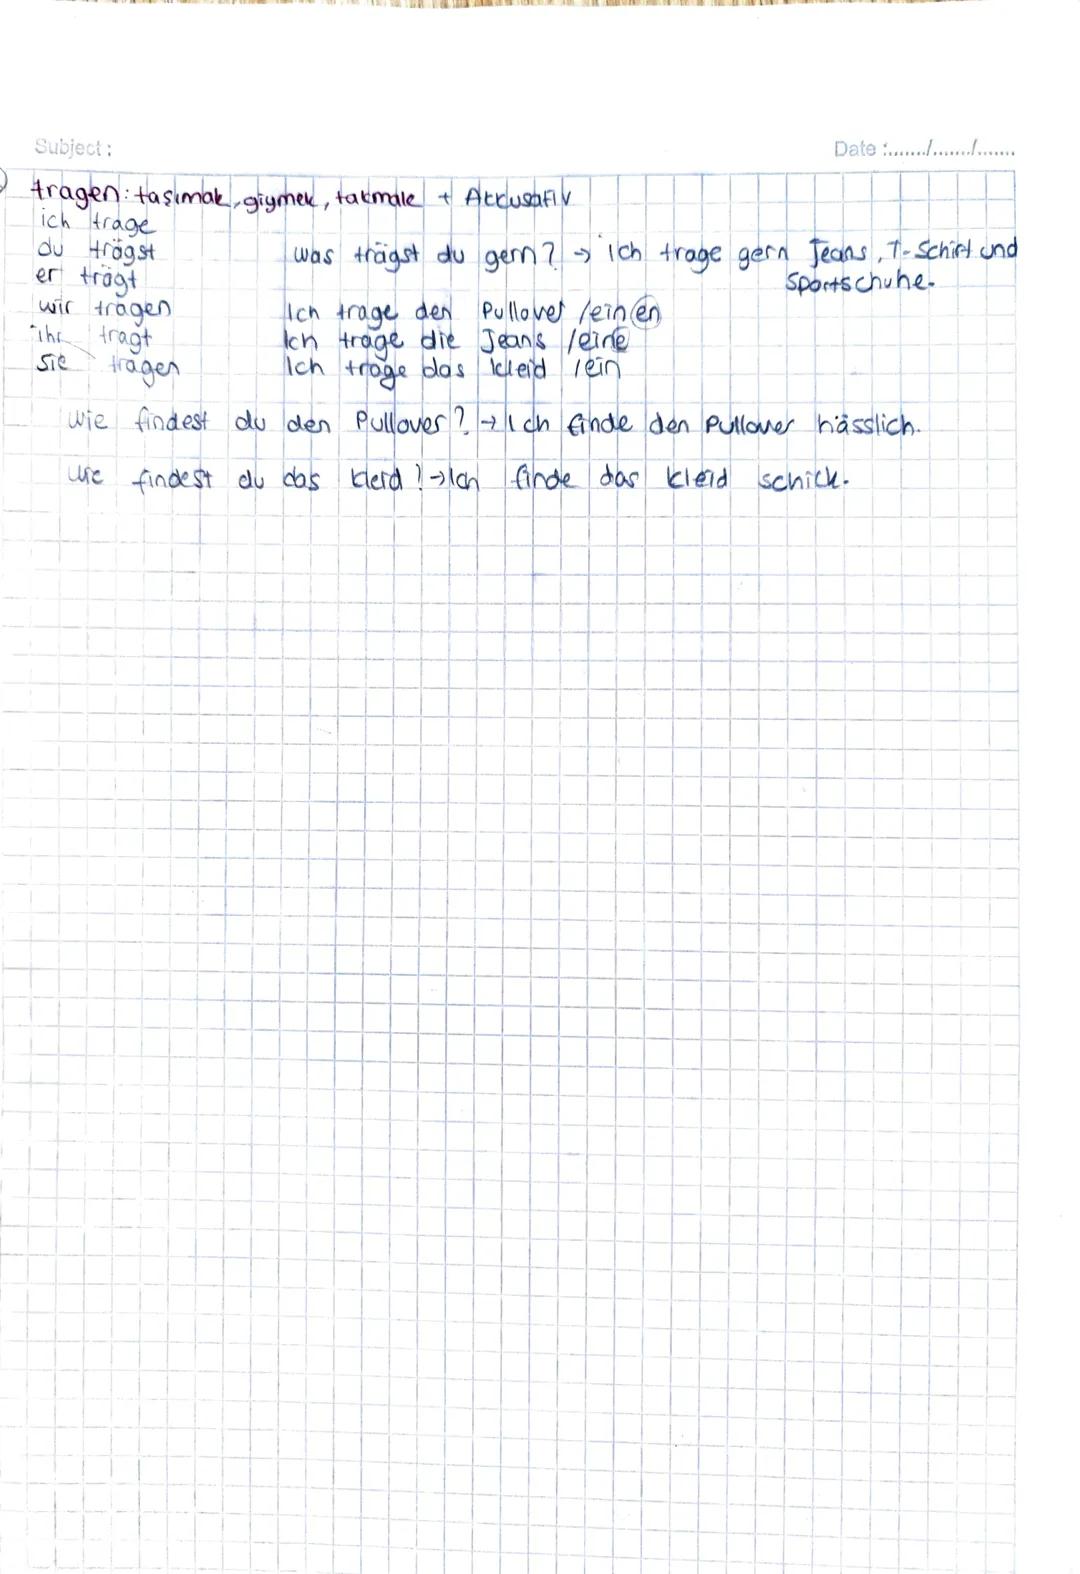 Subject : Date :......./......./.......
tragen: taşımak, giymek, takmak + Akkusativ
ich trage
du trägst was trägst du gern? → ich trage gern Jeans, T-Schirt und
er trägt Sportschuhe.
wir tragen Ich trage den Pullover /einen
ihr tragt Ich trage die Jeans /eine
sie tragen Ich trage das kleid /ein
wie findest du den Pullover? → Ich finde den Pullover hässlich.
wie findest du das kleid? → Ich finde das kleid schick.